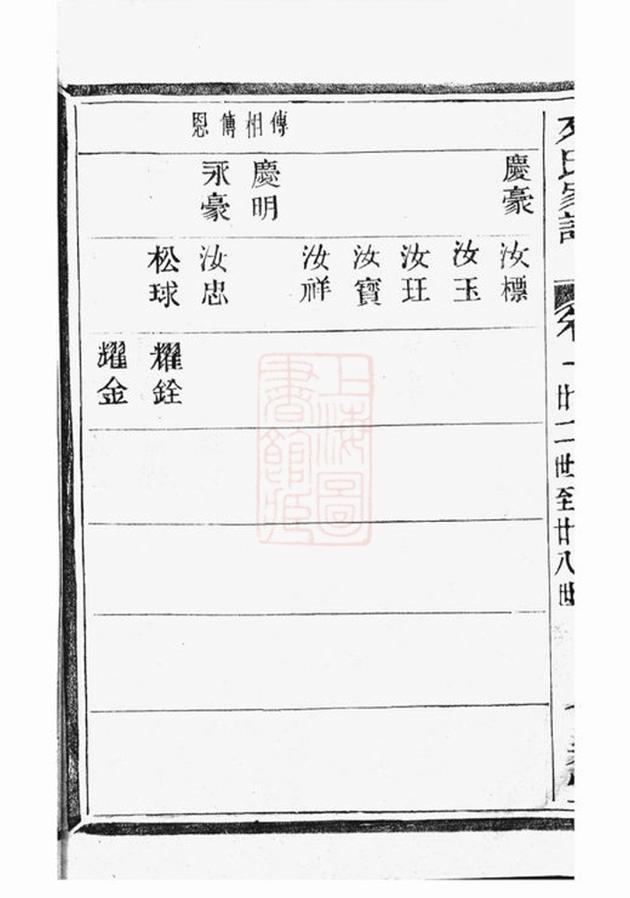 氏家譜
一廿二世至廿八世
傳相傳恩
慶豪
慶明
永豪
汝標
汝玉
汝玨
汝寶
汝祥
汝忠
松球
耀銓
耀金
上海圖書館藏